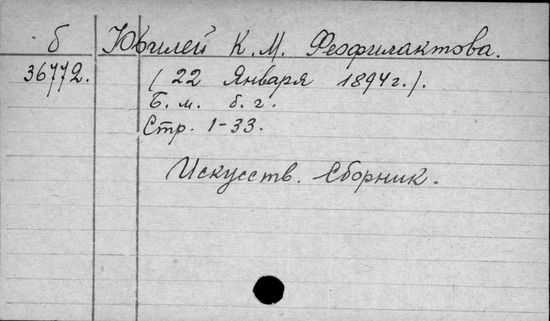 б Юбилей К. М. Феофилактова.
36772. (22 Января 1894 г.).
Б. м. б. г.
Стр. 1-33.
Искусств. Сборник.